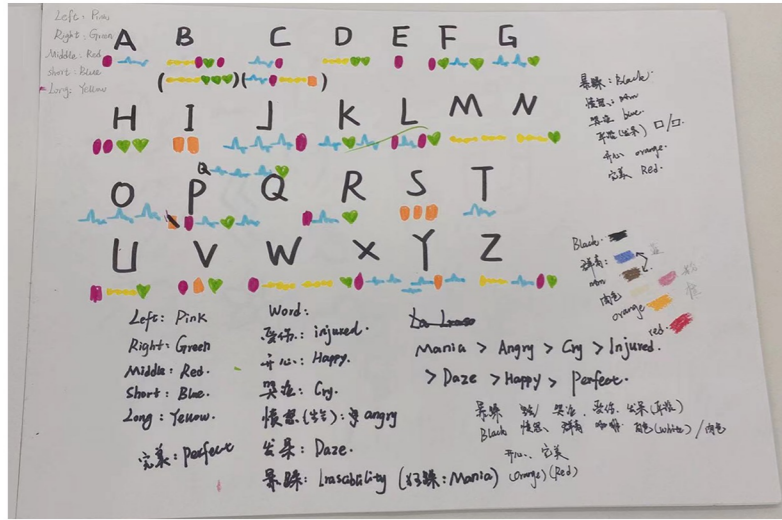 Left: Pink
Right: Green
Middle: Red
Short: Blue
Long: Yellow
A B C D E F G
H I J K L M N
O P Q R S T
U V W X Y Z
暴躁: Black.
blue.
开心 orange.
完美 Red.
Black.
肉色
orange
red.
Left: Pink
Right: Green
Middle: Red.
Short: Blue.
Long: Yellow.
完美: perfect
Word:
受伤: injured.
开心: Happy.
哭泣: Cry.
愤怒(生气): angry
发呆: Daze.
暴躁: Irascibility (狂躁: Mania)
Mania > Angry > Cry > Injured.
> Daze > Happy > Perfect.
暴躁 哭泣、受伤、发呆
Black 愤怒、 (white) / 肉色
开心、完美
(orange) (Red)